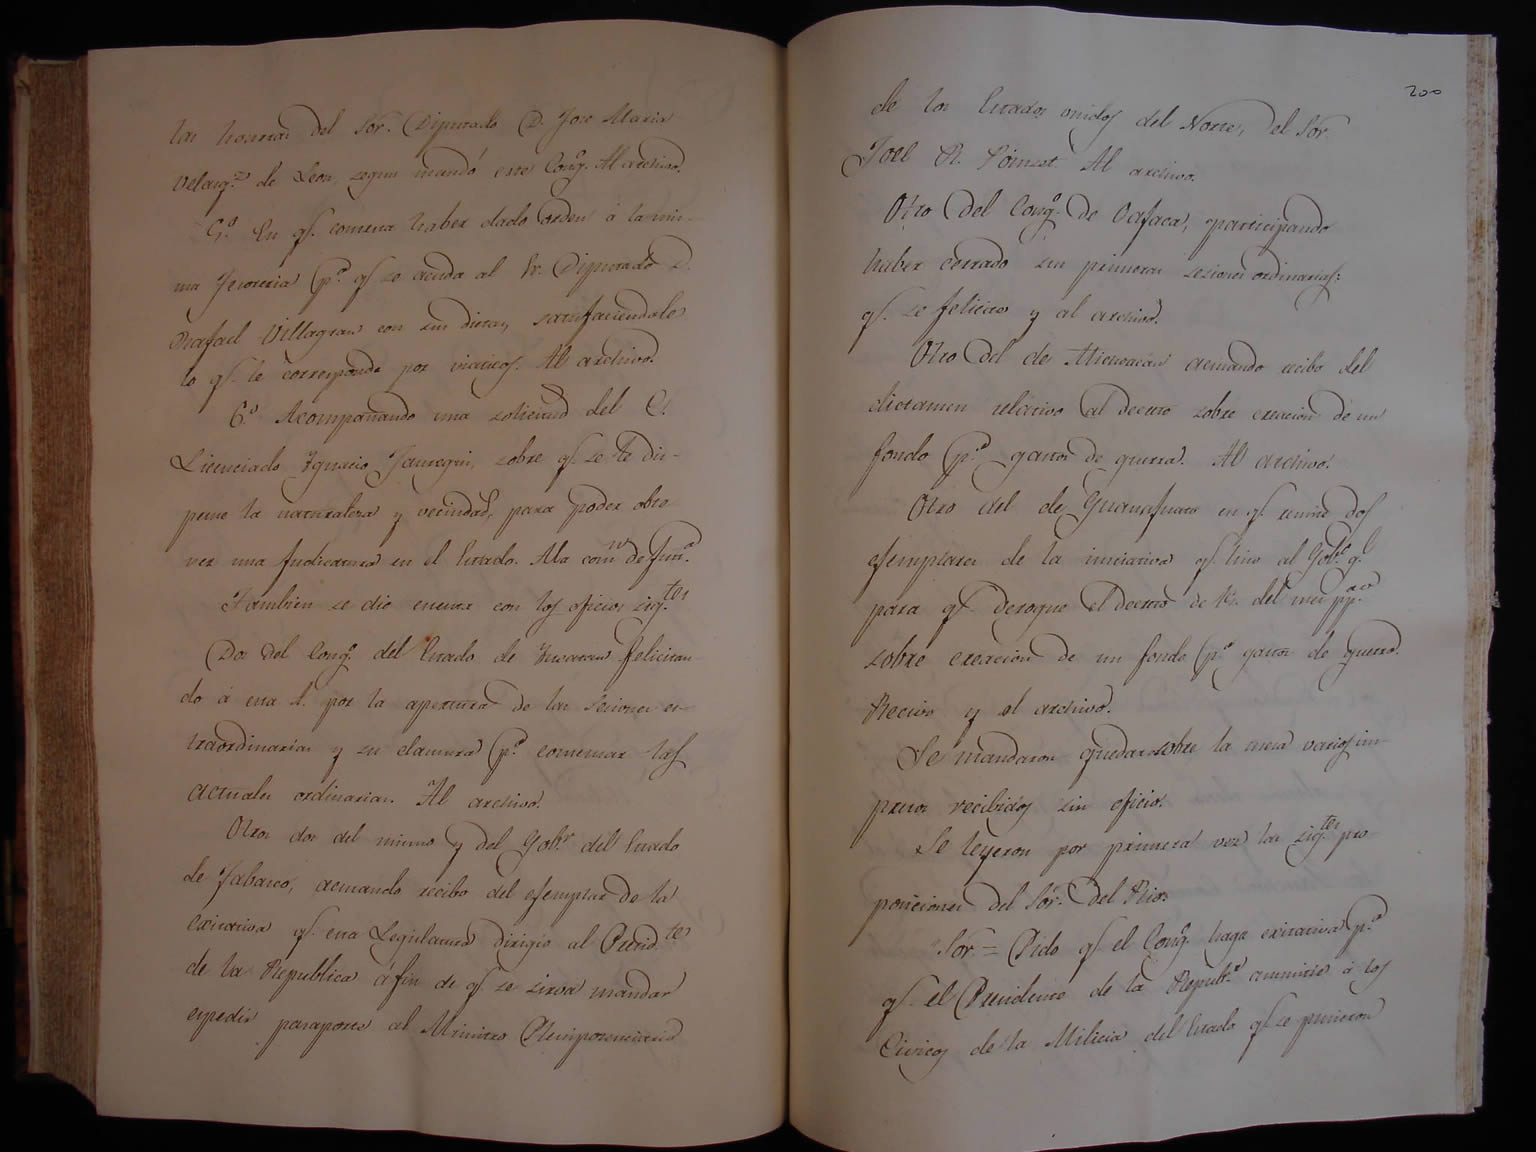 las honras del Sor. Diputado D. Jose Maria
Velazq.z de Leon, segun mandó este Congo. Al archivo.
5.o En qe. consta haber dado orden á la mis-
ma Tesoreria p.a qe. se acuda al Sr. Diputado D.
Rafael Villagran con sus dietas, satisfaciendole
lo qe. le corresponde por viaticos. Al archivo.
6.o Acompañando una solicitud del C.
Licenciado Ygnacio Jauregui, sobre qe. se le dis-
pense la naturaleza y vecindad, para poder obte-
ner una Judicatura en el Estado. A la com.on de Just.a
Tambien se dio cuenta con los oficios sig.tes
Dos del Congo. del Estado de Yucatan felicitan-
do á esta H. por la apertura de las Sesiones es-
traordinarias y su clausura p.a comenzar las
actuales ordinarias. Al archivo.
Otros dos del mismo y del Gob.r del Estado
de Tabasco, acusando recibo del ejemplar de la
exitativa qe. esta Legislatura dirigió al Presid.te
de la Republica á fin de qe. se sirva mandar
espedir pasaporte al Ministro Plenipotenciario
200
de los Estados unidos del Norte, el Sor.
Joel R. Poinset. Al archivo.
Otro del Congo. de Oajaca, participando
haber cerrado sus primeras sesiones ordinarias:
qe. se felicite y al archivo.
Otro del de Michoacán acusando recibo del
dictamen relativo al decreto sobre creacion de un
fondo p.a gastos de guerra. Al archivo.
Otro del de Guanajuato en qe. remite dos
ejemplares de la iniciativa qe. hizo al Gob.o g.l
para qe. derogue el decreto de 17. del mes pp.do
sobre creacion de un fondo p.a gastos de guerra.
Recibo y al archivo.
Se mandaron quedar sobre la mesa varios im-
presos recibidos sin oficio.
Se leyeron por primera vez las sig.tes pro-
posiciones del Sór. Del Rio.
"Sor = Pido qe. el Congo. haga exitativa p.a
qe. el Presidente de la Repub.a amnistie á los
Civicos de la Milicia del Estado qe. se pusieron